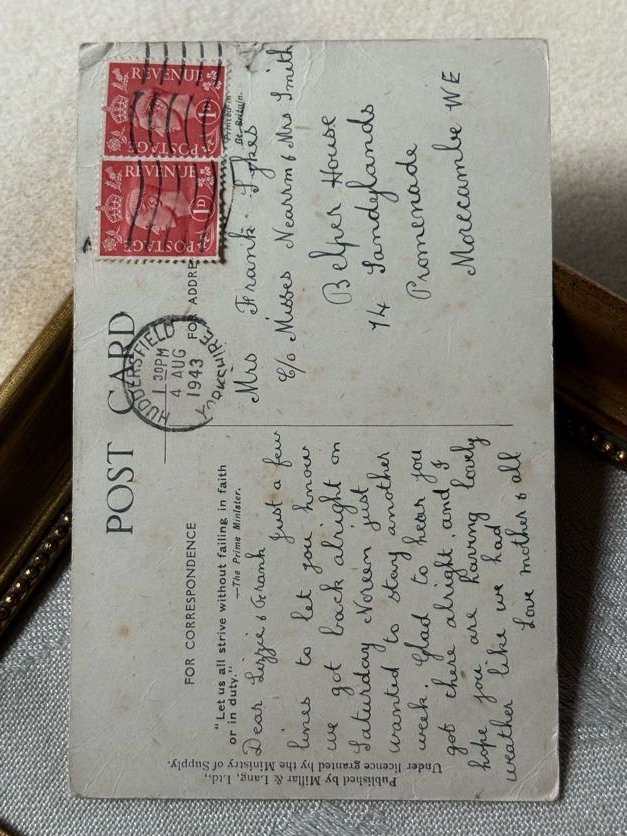 POST CARD
FOR CORRESPONDENCE
"Let us all strive without failing in faith
or in duty."
—The Prime Minister.
Dear Lizzie & Frank just a few
lines to let you know
we got back alright on
Saturday Noreen just
wanted to stay another
week. Glad to hear you
got there alright and I
hope you are having lovely
weather like we had
Love mother & all
Published by Millar & Lang, Ltd.,
Under licence granted by the Ministry of Supply.
HUDDERSFIELD
1 30PM
4 AUG
1943
YORKSHIRE
FOR ADDRE
REVENUE
1D
POSTAGE
REVENUE
1D
POSTAGE
Printed in
Gt. Britain.
Mrs Frank Sykes
C/o Misses Nearrm & Mrs Smith
Belper House
74 Sandylands
Promenade
Morecambe WE